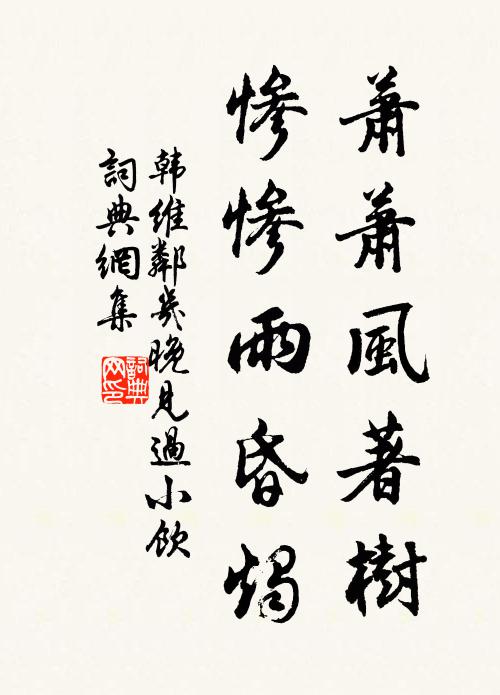 蕭蕭風著樹
慘慘雨昏燭
韩維鄰幾晚見過小飲
詞典網集
詞典網印